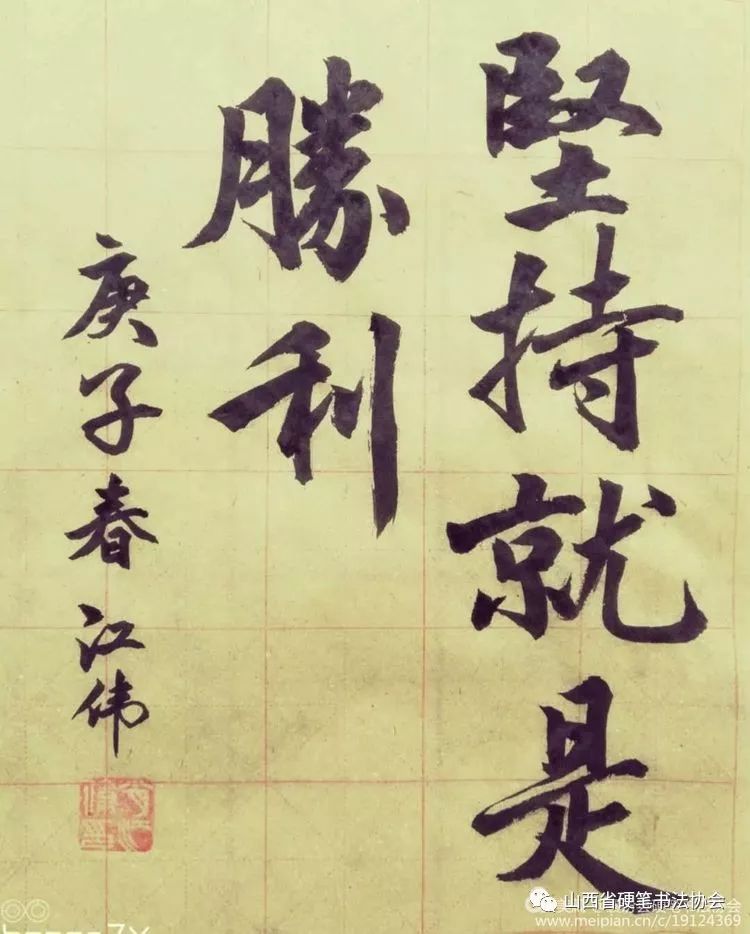 堅持就是
勝利
庚子春 江伟
山西省硬笔书法协会
www.meipian.cn/c/19124369